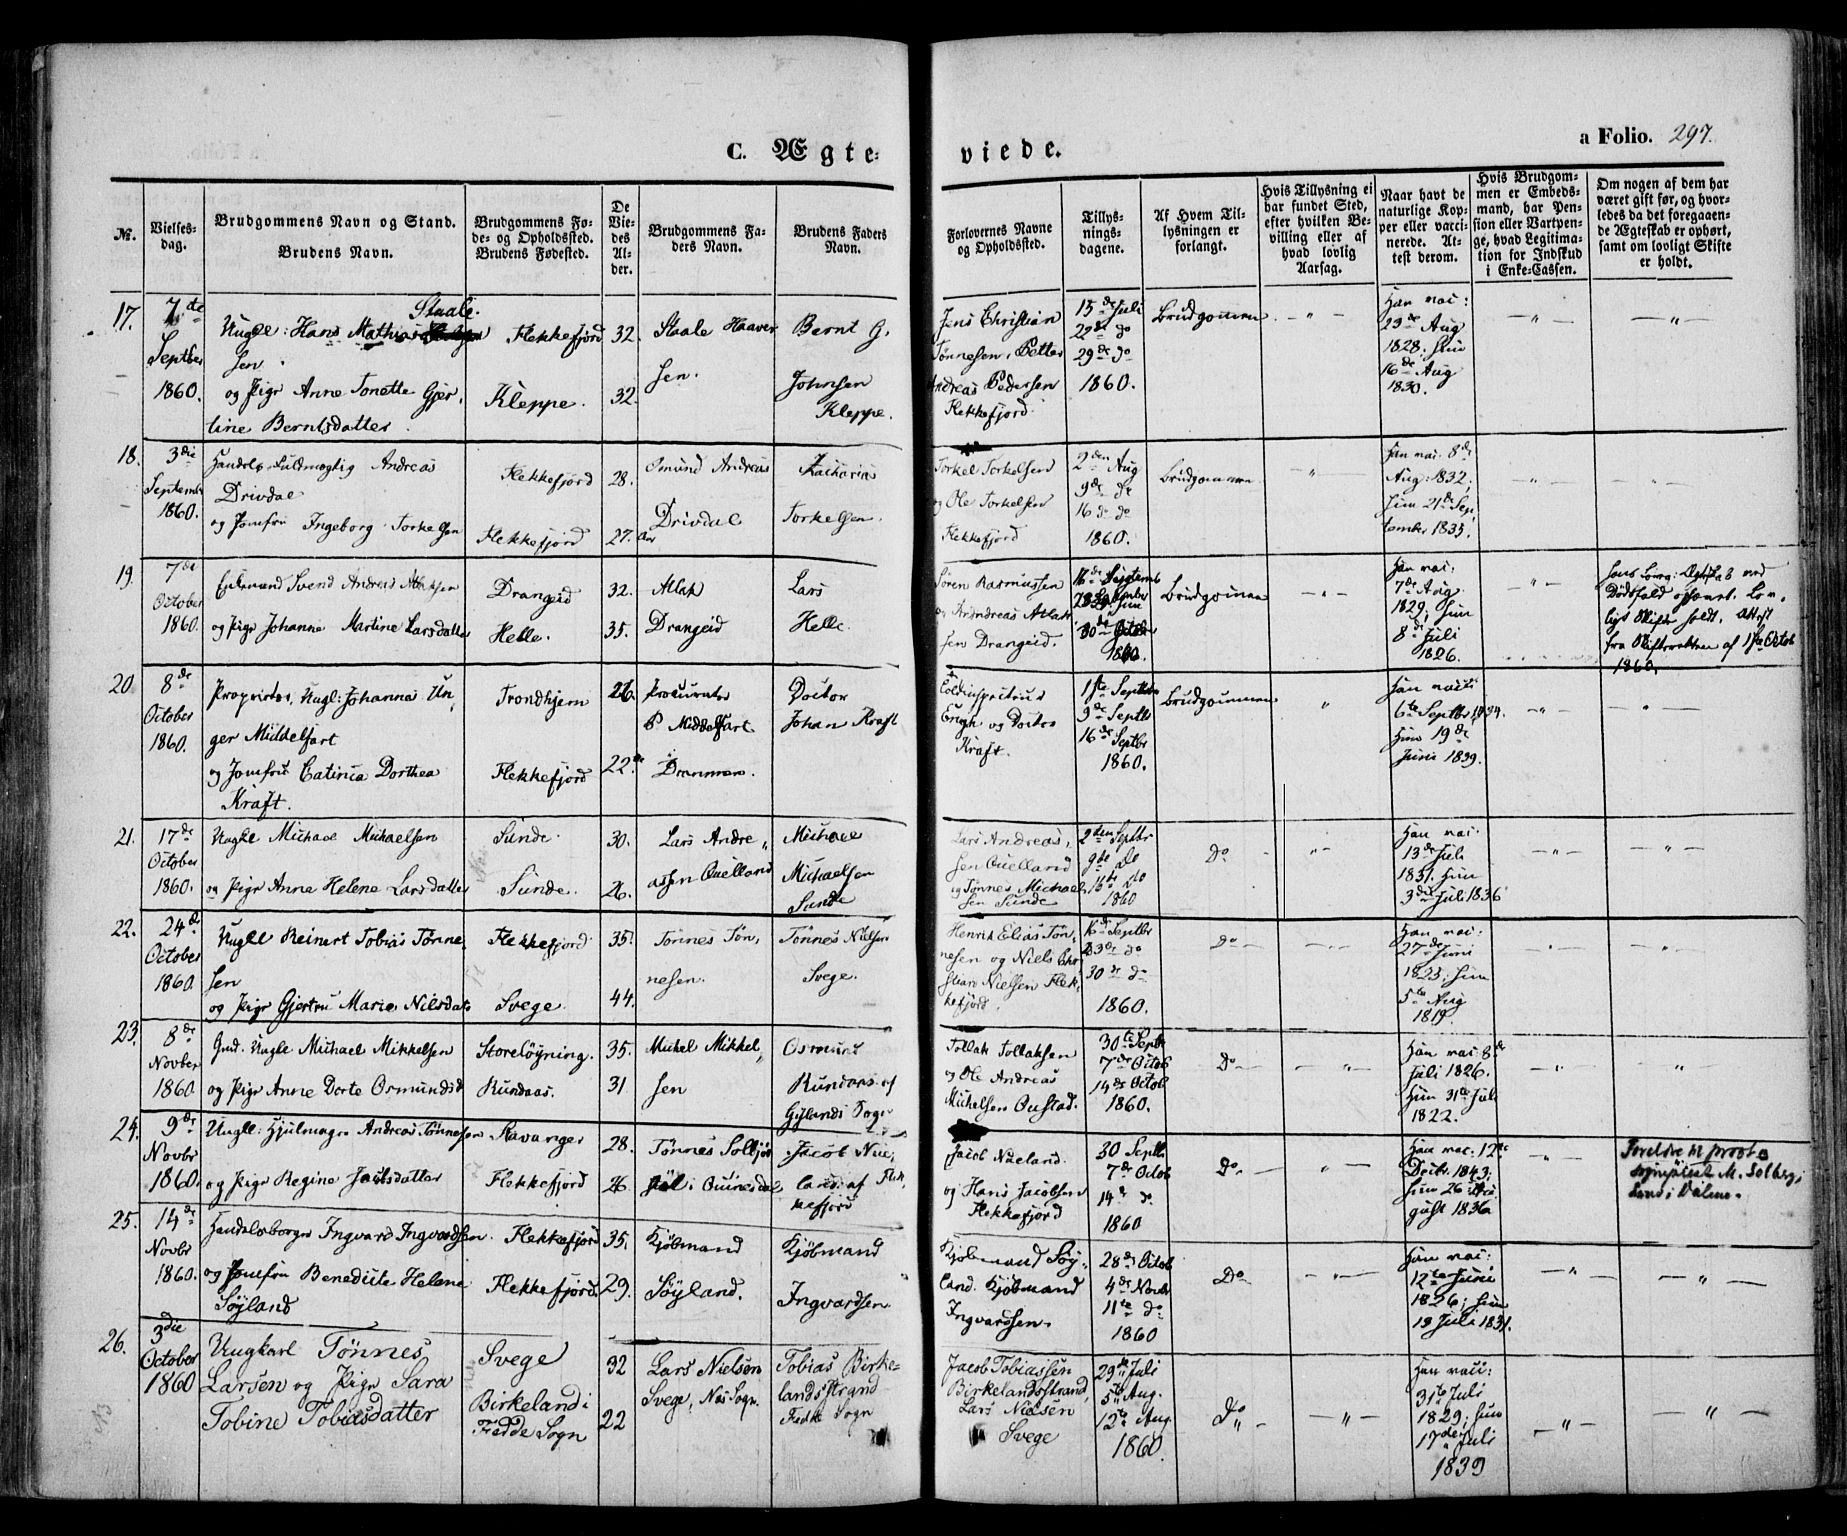 C. Ægte-
viede.
a Folio. 297.
№.
Vielses-
dag.
Brudgommens Navn og Stand.
Brudens Navn.
Brudgommens Fø-
de- og Opholdssted.
Brudens Fødested.
De
Vie-
des
Al-
der.
Brudgommens Fa-
ders Navn.
Brudens Faders
Navn.
Forlovernes Navne
og Opholdssted.
Tillys-
nings-
dagene.
Af Hvem Til-
lysningen er
forlangt.
Hvis Tillysning ei
har fundet Sted,
efter hvilken Be-
villing eller af
hvad lovlig
Aarsag.
Naar havt de
naturlige Kop-
per eller vacci-
nerede. At-
test derom.
Hvis Brudgom-
men er Embeds-
mand, har Pen-
sion eller Vartpen-
ge, hvad Legitima-
tion for Indskud
i Enke-Cassen.
Om nogen af dem har
været gift før, og hvor-
ledes da det foregaaen-
de Ægteskab er ophørt,
samt om lovligt Skifte
er holdt.
17.
7de
Septber
1860.
Staale
Ungk: Hans Mathias
sen
og Pige Anne Tonette Gjer-
tine Berntsdatter.
Flekkefjord
Kleppe.
32.
32.
Staale Haaver
sen.
Bernt G.
Johnsen
Kleppe.
Jens Christian
Tønnesen, Petter
Andreas Pedersen
Flekkefjord
15de Juli
22de do
29de do
1860.
Brudgommen
Han vac:
23de Aug
1828; hun
16de Aug
1830.
18.
3die
Septembr
1860.
Handels-Fuldmægtig Andreas
Drivdal
og Jomfru Ingeborg Torkelsen
Flekkefjord
Flekkefjord
28.
27. Aar
Osmund Andreas
Drivdal
Zacharias
Torkelsen.
Torkel Torkelsen
og Ole Torkelsen
Flekkefjord
2den Aug
9de do
16de do
1860.
Brudgommen
Han vac. 8de
Aug: 1832;
hun 21de Sep
tember 1835.
19.
7de
October
1860
Enkemand Svend Andreas Atlaksen
og Pige Johanne Martine Larsdatter
Drangeid
Helle.
32.
35.
Atlak
Drangeid
Lars
Helle.
Søren Rasmussen
og Andreas Atlak
sen Drangeid.
16de Septemb
30de Octob
1860.
Brudgommen
Han vac:
7de Aug
1829; hun
8de Juli
1826.
hans forrig: Ægteskab ved
Dødsfald ophævet. Lov-
ligt Skifte holdt. Attest
fra Skifteretten af 1ste Octob
1860.
20
8de
October
1860.
Proprietær, Ungk: Johannes Un-
ger Middelfart
og Jomfru Catinca Dorthea
Kraft.
Trondhjem
Flekkefjord
26.
22.
Procurator
P Middelfart
Drammen.
Doctor
Johan Kraft
Toldinspecteur
Erigh og Doctor
Kraft.
1ste Septbr
9de Septbr
16de Septbr
1860.
Brudgommen
Han vacc:
6te Septbr 1834.
Hun 19de
Juni 1839.
21.
17de
October
1860.
Ungkl Michael Michaelsen
og Pige Anne Helene Larsdatter
Sunde.
Sunde.
30.
26.
Lars Andre-
assen Qvelland
Michael
Michaelsen
Sunde
Lars Andreas-
sen Qvelland
og Tønnes Michael
sen Sunde
2den Septbr
9de Do
16de Do
1860
Do
Han vac:
13de Juli
1831. Hun
3die Juli 1836
22.
24de
October
1860.
Ungkl Reinert Tobias Tønne-
sen
og Pige Gjertru Marie Nilsdat
Flekkefjord
Svege.
35.
44.
Tønnes Tøn-
nesen.
Tønnes Nielsen
Svege.
Henrik Elias Tøn-
nesen og Niels Chr
stian Nielsen Flek-
kefjord.
16de Septbr
23de do
30de do
1860.
Do
Han vac:
27de Juni
1825; hun
5te Aug
1819.
23.
8de
Novber
1860
Gmd. Ungkl Michael Mikkelsen
og Pige Anne Dorte Osmundsd
Storeløyning.
Rundaas.
35.
31
Michel Mikkel-
sen
Osmund
Rundaas af
Gylands Sogn
Tollak Tollaksen
og Ole Andreas
Michelsen Oustad.
30te Septb
7de Octob
14de Octob
1860.
Do
Han vac: 8de
Juli 1826.
Hun 31te Juli
1822.
24.
9de
Novbr
1860.
Ungkl: Hjulmager Andreas Tønnesen
og Pige Regine Jacobsdatter
Stavanger
Flekkefjord
28.
26
Tønnes Solbjør
i Quinesdal
Jacob Nue-
land af Flek-
kefjord
Jacob Nueland.
og Hans Jacobsen
Flekkefjord
30 Septb
7de Octob
14de do
1860
Do
Han vac: 12te
Decbr. 1843;
hun 26 Au
gust 1836
25.
14de
Novbr
1860.
Handelsborger Ingvard Ingvardsen.
og Jomfru Benedicte Helene
Søyland
Flekkefjord
Flekkefjord
35.
29.
Kjøbmand
Søyland.
Kjøbmand
Ingvardsen
Kjøbmand Søy-
land. Kjøbmand
Ingvardsen.
28de Octob
4de Novbr
11te do
1860
Do
Han vac:
12te Juni
1826; hun
19 Juli 1831.
26.
3die
October
1860
Ungkarl Tønnes
Larsen og Pige Sara
Tobine Tobiasdatter
Svege
Birkeland i
Fedde Sogn
32
22
Lars Nielsen
Svege, Næs Sogn.
Tobias Birke-
landsstrand
Fedde Sogn
Jacob Tobiassen
Birkelandsstrand,
Lars Nielsen
Svege
29de Juli
5te Aug.
12te Aug.
1860
Do
Han vacc:
31te Juli
1829; hun
17de Juli
1839